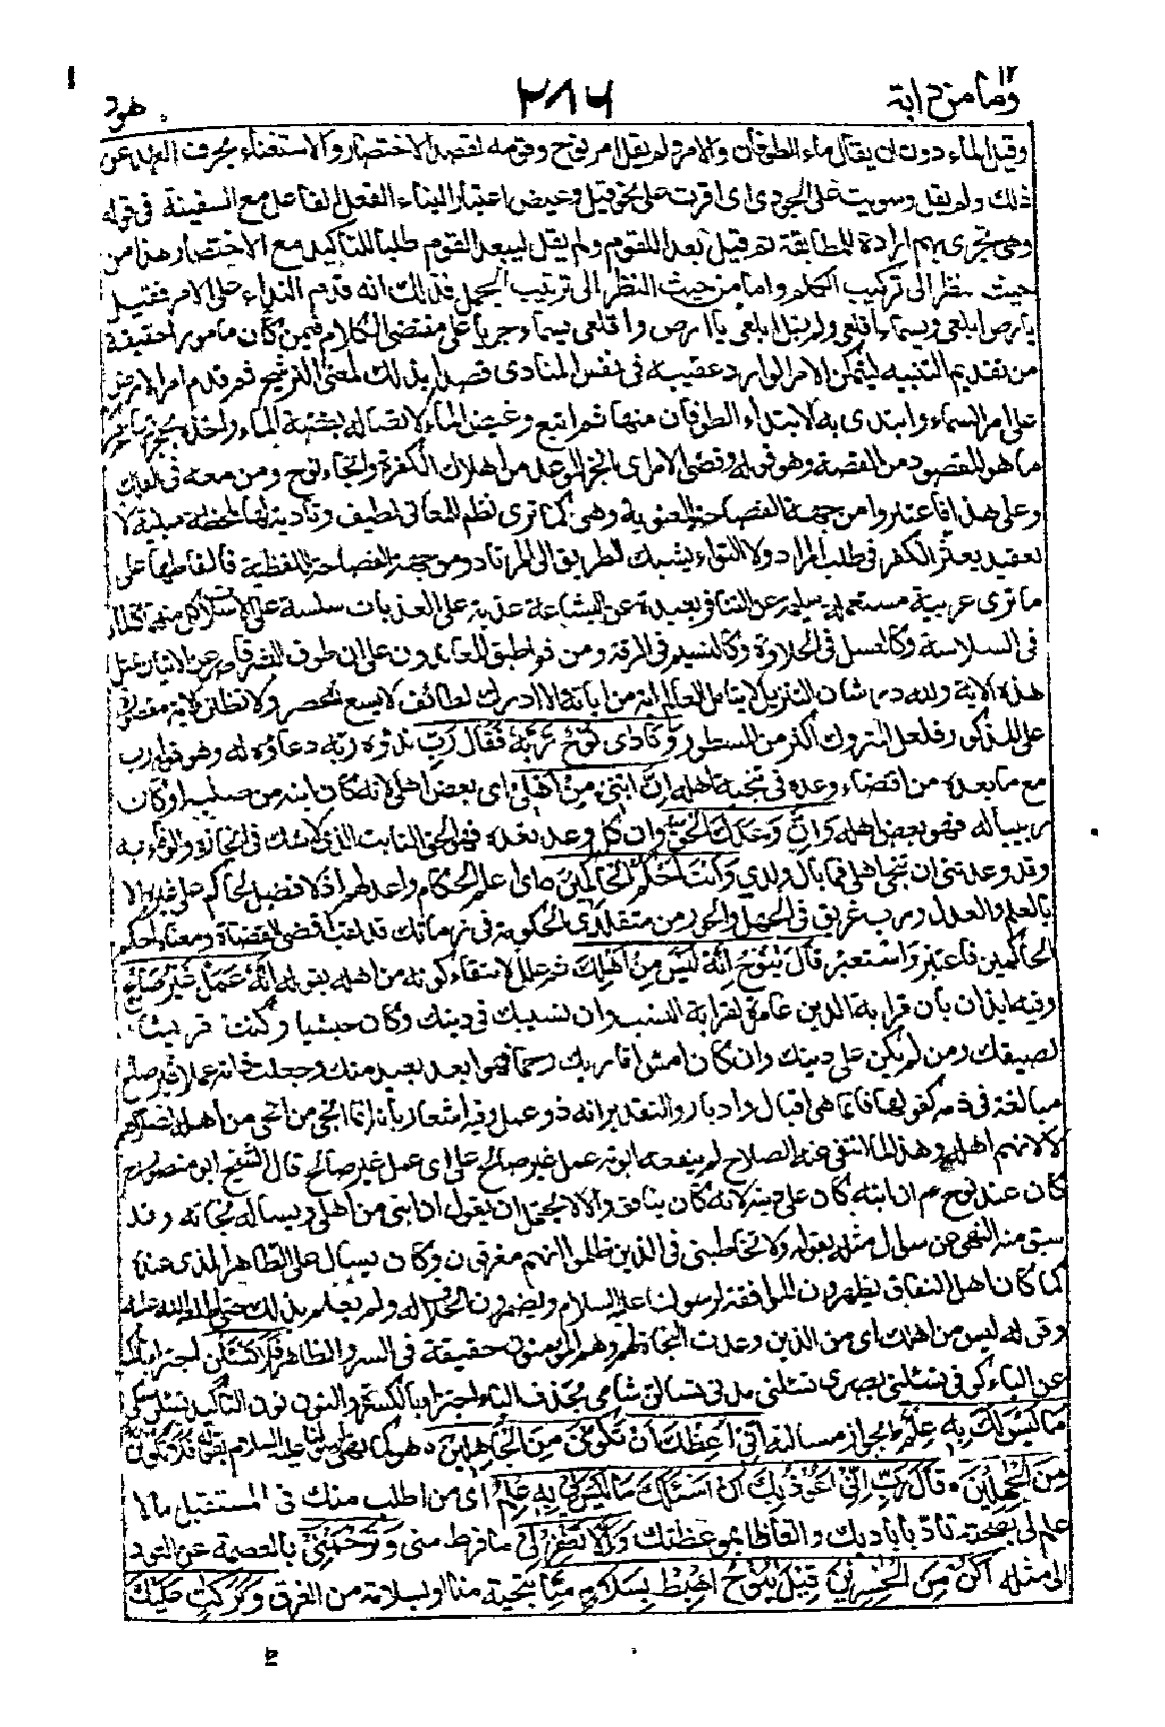 ١٢
وما من دابة
٢٨٦
هود
وقيل الماء دون ان يقال ماء الطوفان والامر ولم يقل امر نوح وقومه لقصد الاختصار والاستغناء بحرف العهد عن
ذلك ولم يقل وسويت على الجودي اى اقرت على نحو قيل وغيض اعتبار البناء الفعل للفاعل مع السفينة فى قوله
وهى تجرى بهم ارادة للمطابقة ثم قيل بعدا للقوم ولم يقل ليبعد القوم طلبا للتاكيد مع الاختصار هذا من
حيث نظر الى تركيب الكلم واما من حيث النظر الى ترتيب الجمل فذلك انه قدم النداء على الامر فقيل
يارض ابلعى ويسماء اقلعى ولم يقل ابلعى يا ارض واقلعى يسماء جريا على مقتضى الكلام فيمن كان مامورا حقيقة
من تقديم التنبيه ليتمكن الامر الوارد عقيبه فى نفس المنادى قصدا بذلك لمعنى الترشيح ثم قدم امر الارض
على امر السماء وابتدى به لابتداء الطوفان منها ثم اتبع وغيض الماء لاتصاله بقصة الماء واخذه بحجزتها ثم ذكر
ما هو المقصود من القصة وهو قوله وقضى الامر اى انجز الموعد من اهلاك الكفرة وانجاء نوح ومن معه فى الفلك
وعلى هذا فاعتبر وا من جهة الفصاحة المعنوية وهى كما ترى نظم للمعانى لطيف وتادية لها ملخصة مبينة لا
تعقيد يعثر الفكر فى طلب المراد ولا التواء يشيك الطريق الى المرتاد ومن جهة الفصاحة اللفظية فالفاظها على
ما ترى عربية مستعملة سليمة عن التنافر بعيدة عن البشاعة عذبة على العذبات سلسة على الاسلات كل منها كالماء
فى السلاسة وكالعسل فى الحلاوة وكالنسيم فى الرقة ومن ثم اطبق المعاندون على ان طوق البشر قاصر عن الاتيان بمثل
هذه الاية ولله در شان التنزيل لا يتامل العالم اية من اياته الا ادرك لطائف لا يسع الحصر ولا تظنن الاية مقصورة
على المذكور فلعل المتروك اكثر من المسطور وَنَادٰى نُوْحٌ رَّبَّهٗ فَقَالَ رَبِّ نداؤه ربه دعاؤه له وهو قوله رب
مع ما بعده من اقتضاء وعده فى تنجية اهله اِنَّ ابْنِىْ مِنْ اَهْلِىْ اى بعض اهلى لانه كان ابنه من صلبه او كان
ربيبا له فهو بعض اهله وَاِنَّ وَعْدَكَ الْحَقُّ وان كل وعد تعده فهو الحق الثابت الذى لا شك فى انجازه والوفاء به
وقد وعدتنى ان تنجى اهلى فما بال ولدى وَاَنْتَ اَحْكَمُ الْحٰكِمِيْنَ اى اعلم الحكام واعدلهم اذ لا فضل لحاكم على غيره الا
بالعلم والعدل ورب غريق فى الجهل والجور من متقلدى الحكومة فى زمانك قد لقب اقضى القضاة ومعناه احكم
الحاكمين فاعتبر واستعبر قَالَ يٰنُوْحُ اِنَّهٗ لَيْسَ مِنْ اَهْلِكَ ثم علل لانتفاء كونه من اهله بقوله اِنَّهٗ عَمَلٌ غَيْرُ صَالِحٍ
وفيه ايذان بان قرابة الدين غامرة لقرابة النسب وان نسيبك فى دينك وكان حبشيا وكنت قريشيا
لصيقك ومن لم يكن على دينك وان كان امس اقاربك رحما فهو ابعد بعيد منك وجعلت ذاته عملا غير صالح
مبالغة فى ذمه كقولها فانما هى اقبال وادبار والتقدير انه ذو عمل وفيه اشعار بانه انما انجى من انجى من اهله لصلاحهم
لا لانهم اهله وهذا لما انتفى عنه الصلاح لم ينفعه ابوته عمل غير صالح على اى عمل غير صالح قال الشيخ ابو منصور رح
كان عند نوح عم ان ابنه كان على دينه لانه كان ينافق والا لا يحتمل ان يقول ان ابنى من اهلى ويساله نجاته وقد
سبق منه النهى عن سوال مثله بقوله ولا تخاطبنى فى الذين ظلموا انهم مغرقون وكان يسال على الظاهر الذى عنده
كما كان اهل النفاق يظهرون الموافقة لرسولنا عليه السلام ويضمرون الخلاف له ولم يعلم بذلك حتى اطلعه الله عليه
وقوله ليس من اهلك اى من الذين وعدت النجاة لهم وهم المؤمنون حقيقة فى السر والظاهر فَلَا تَسْئَلْنِ اجتزاء بالكسرة
عن الياء كوفى تسئلنى بصرى تسئلنى مدنى تسالن شامى بحذف الياء اجتزاء بالكسرة والنون نون التاكيد تسئلن مكى
مَا لَيْسَ لَكَ بِهٖ عِلْمٌ بجواز مسالته اِنِّىْ اَعِظُكَ اَنْ تَكُوْنَ مِنَ الْجٰهِلِيْنَ هو كما نهى رسولنا عليه السلام بقوله فَلَا تَكُوْنَنَّ
مِنَ الْجٰهِلِيْنَ قَالَ رَبِّ اِنِّىْ اَعُوْذُ بِكَ اَنْ اَسْئَلَكَ مَا لَيْسَ لِىْ بِهٖ عِلْمٌ اى من اطلب منك فى المستقبل ما لا
علم لى بصحته تادبا بادبك واتعاظا بموعظتك وَاِلَّا تَغْفِرْ لِىْ ما فرط منى وَتَرْحَمْنِىْ بالعصمة عن العود
الى مثله اَكُنْ مِّنَ الْخٰسِرِيْنَ قِيْلَ يٰنُوْحُ اهْبِطْ بِسَلٰمٍ مِّنَّا بتحية منا او بسلامة من الغرق وَبَرَكٰتٍ عَلَيْكَ